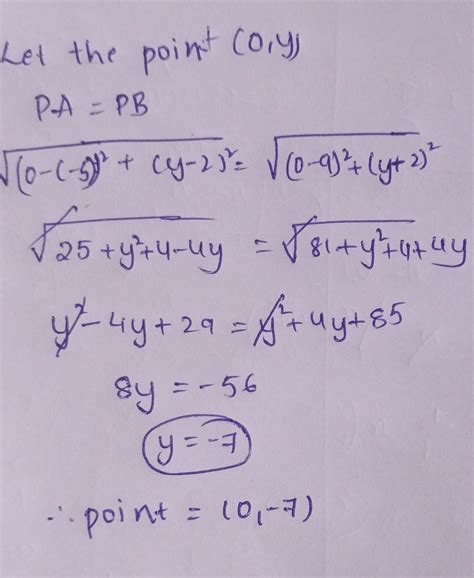 Let the point (0,y)
PA = PB
√(0-(-5))² + (y-2)² = √(0-9)²+(y+2)²
√25+y²+4-4y = √81+y²+4+4y
y²-4y+29 = y²+4y+85
8y = -56
y = -7
∴ point = (0,-7)